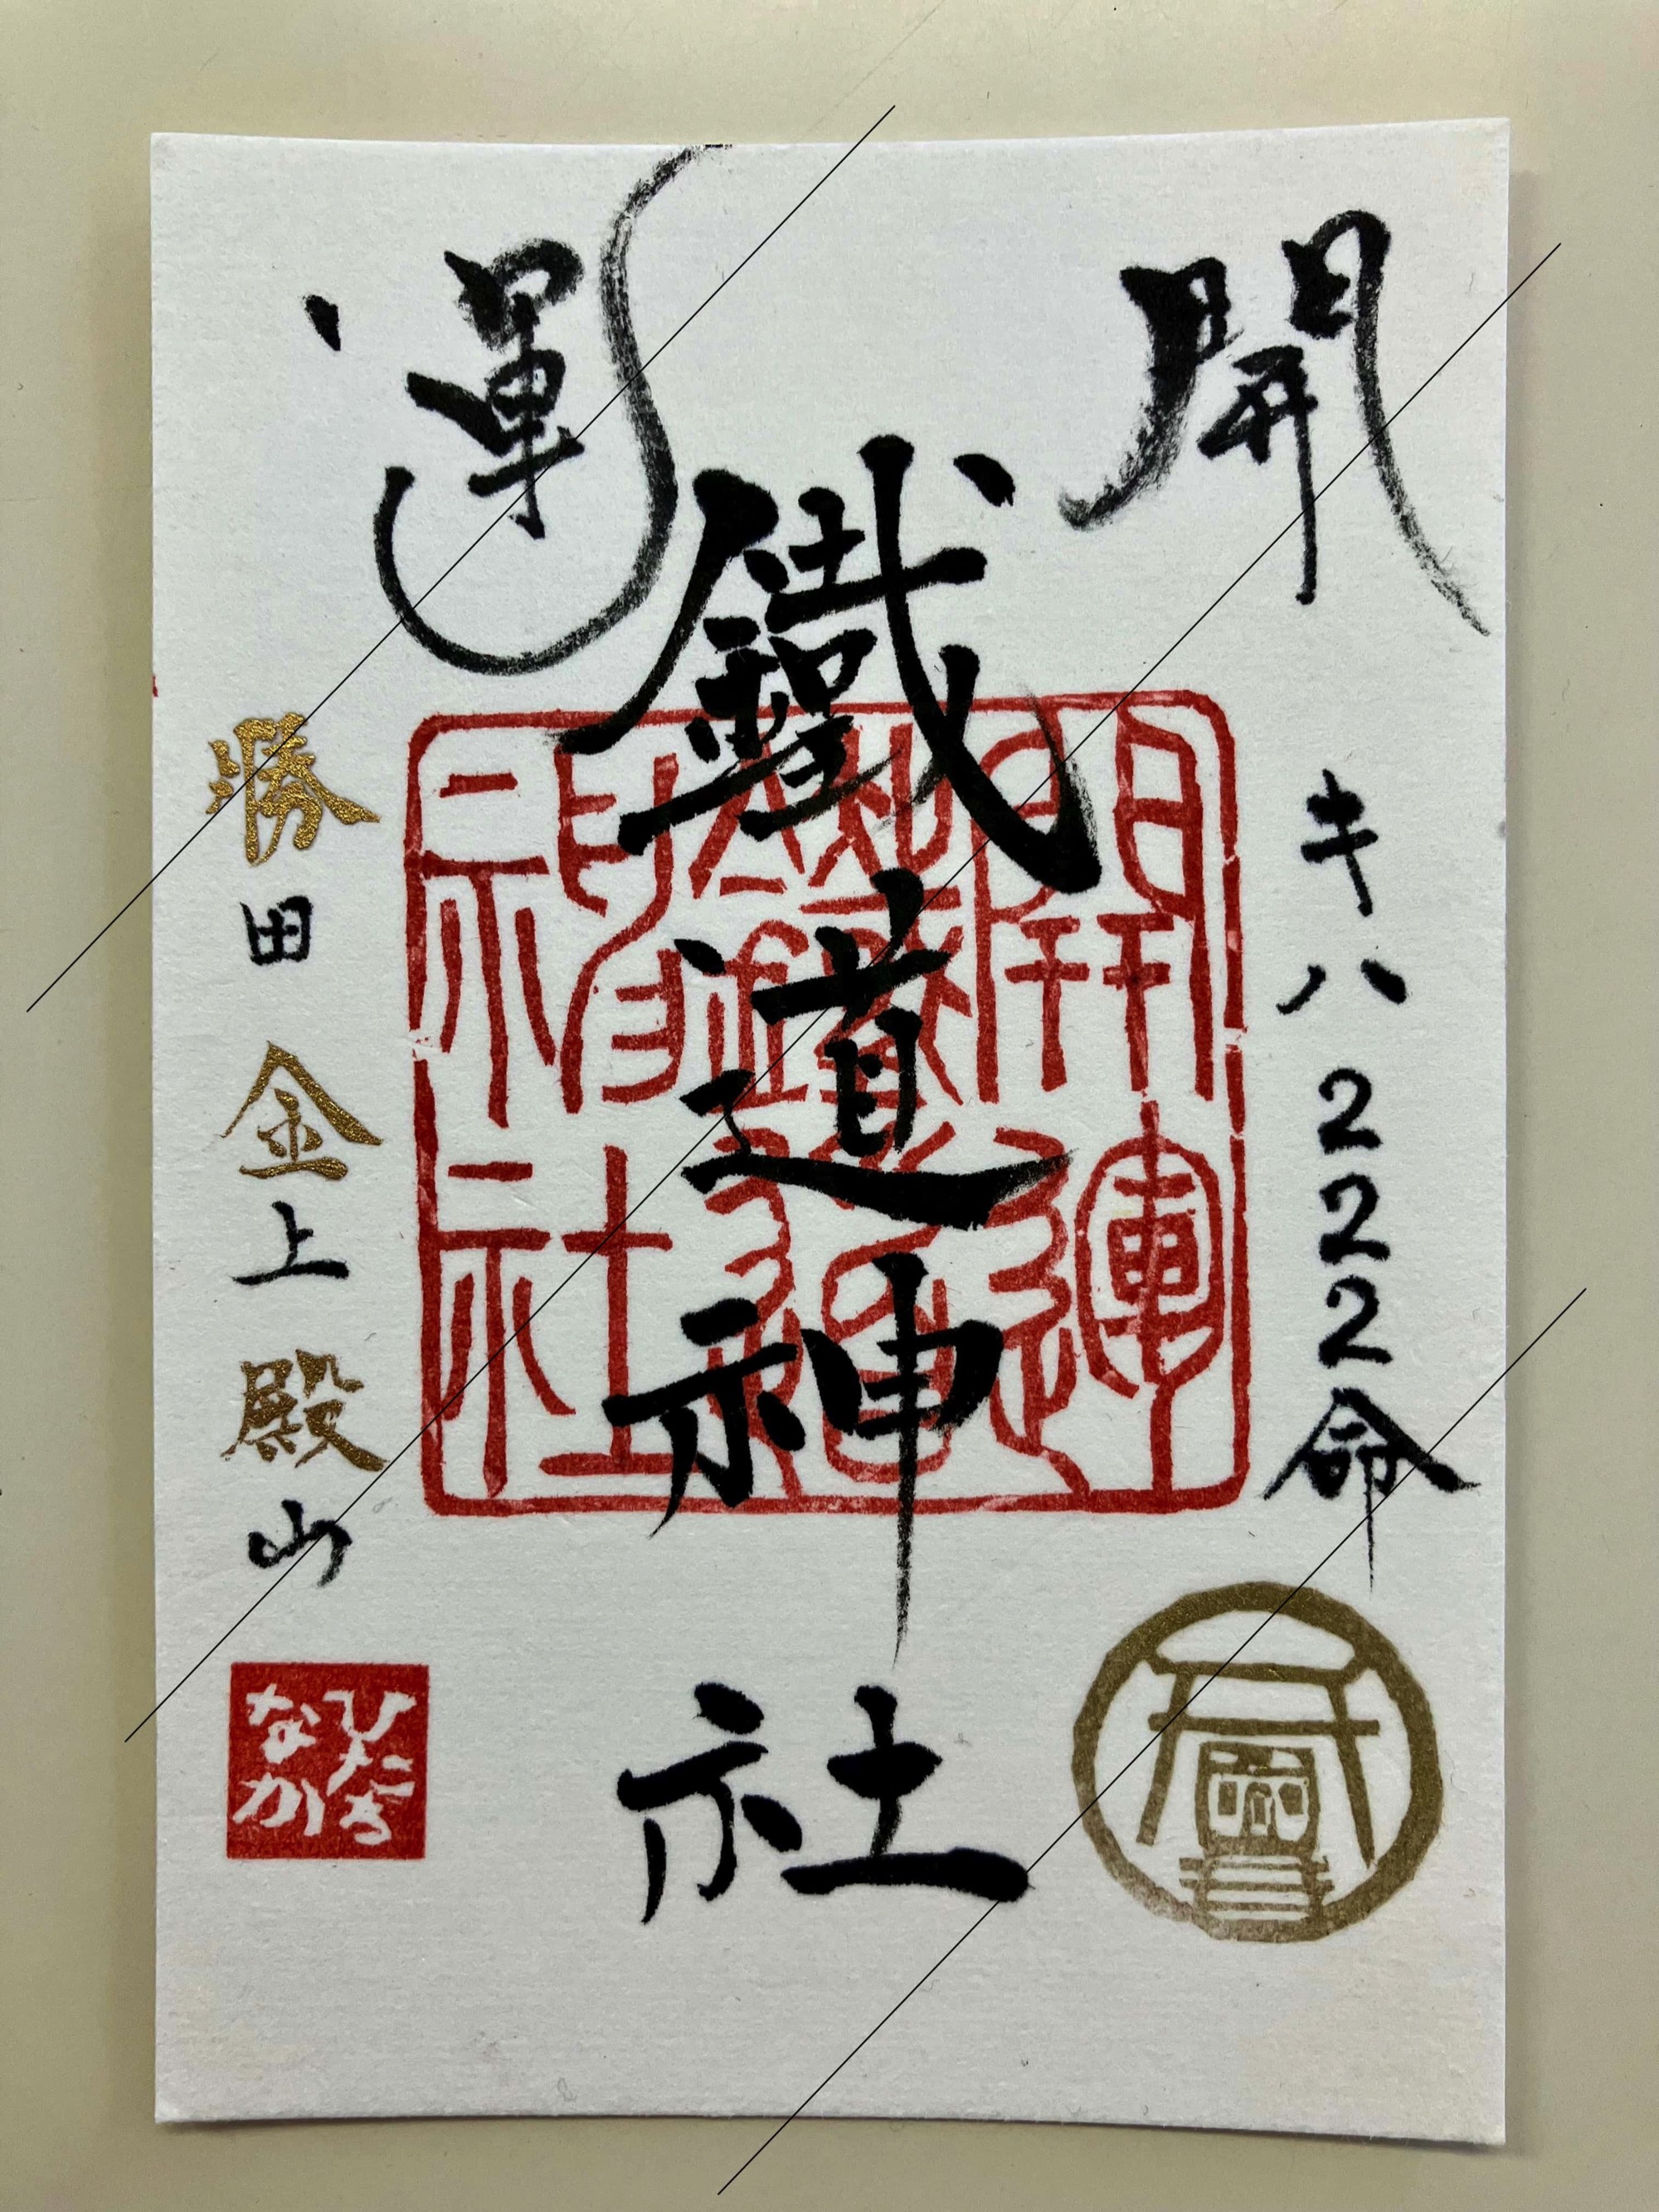 開運
キハ222命
鐵道神社
開運鐵道神社
勝田金上殿山
ひたち
なか